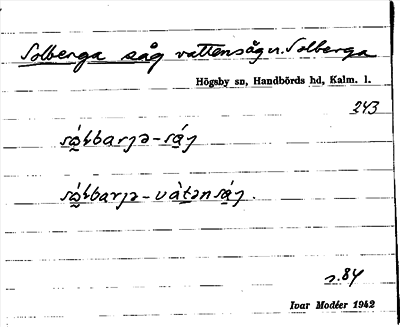 Solberga såg vattensåg u. Solberga
Högsby sn, Handbörds hd, Kalm. l.
243
só̤ɫbarɟə-sá̤ɟ
só̤ɫbarɟə-vàtən sá̤ɟ.
s. 84
Ivar Modéer 1942